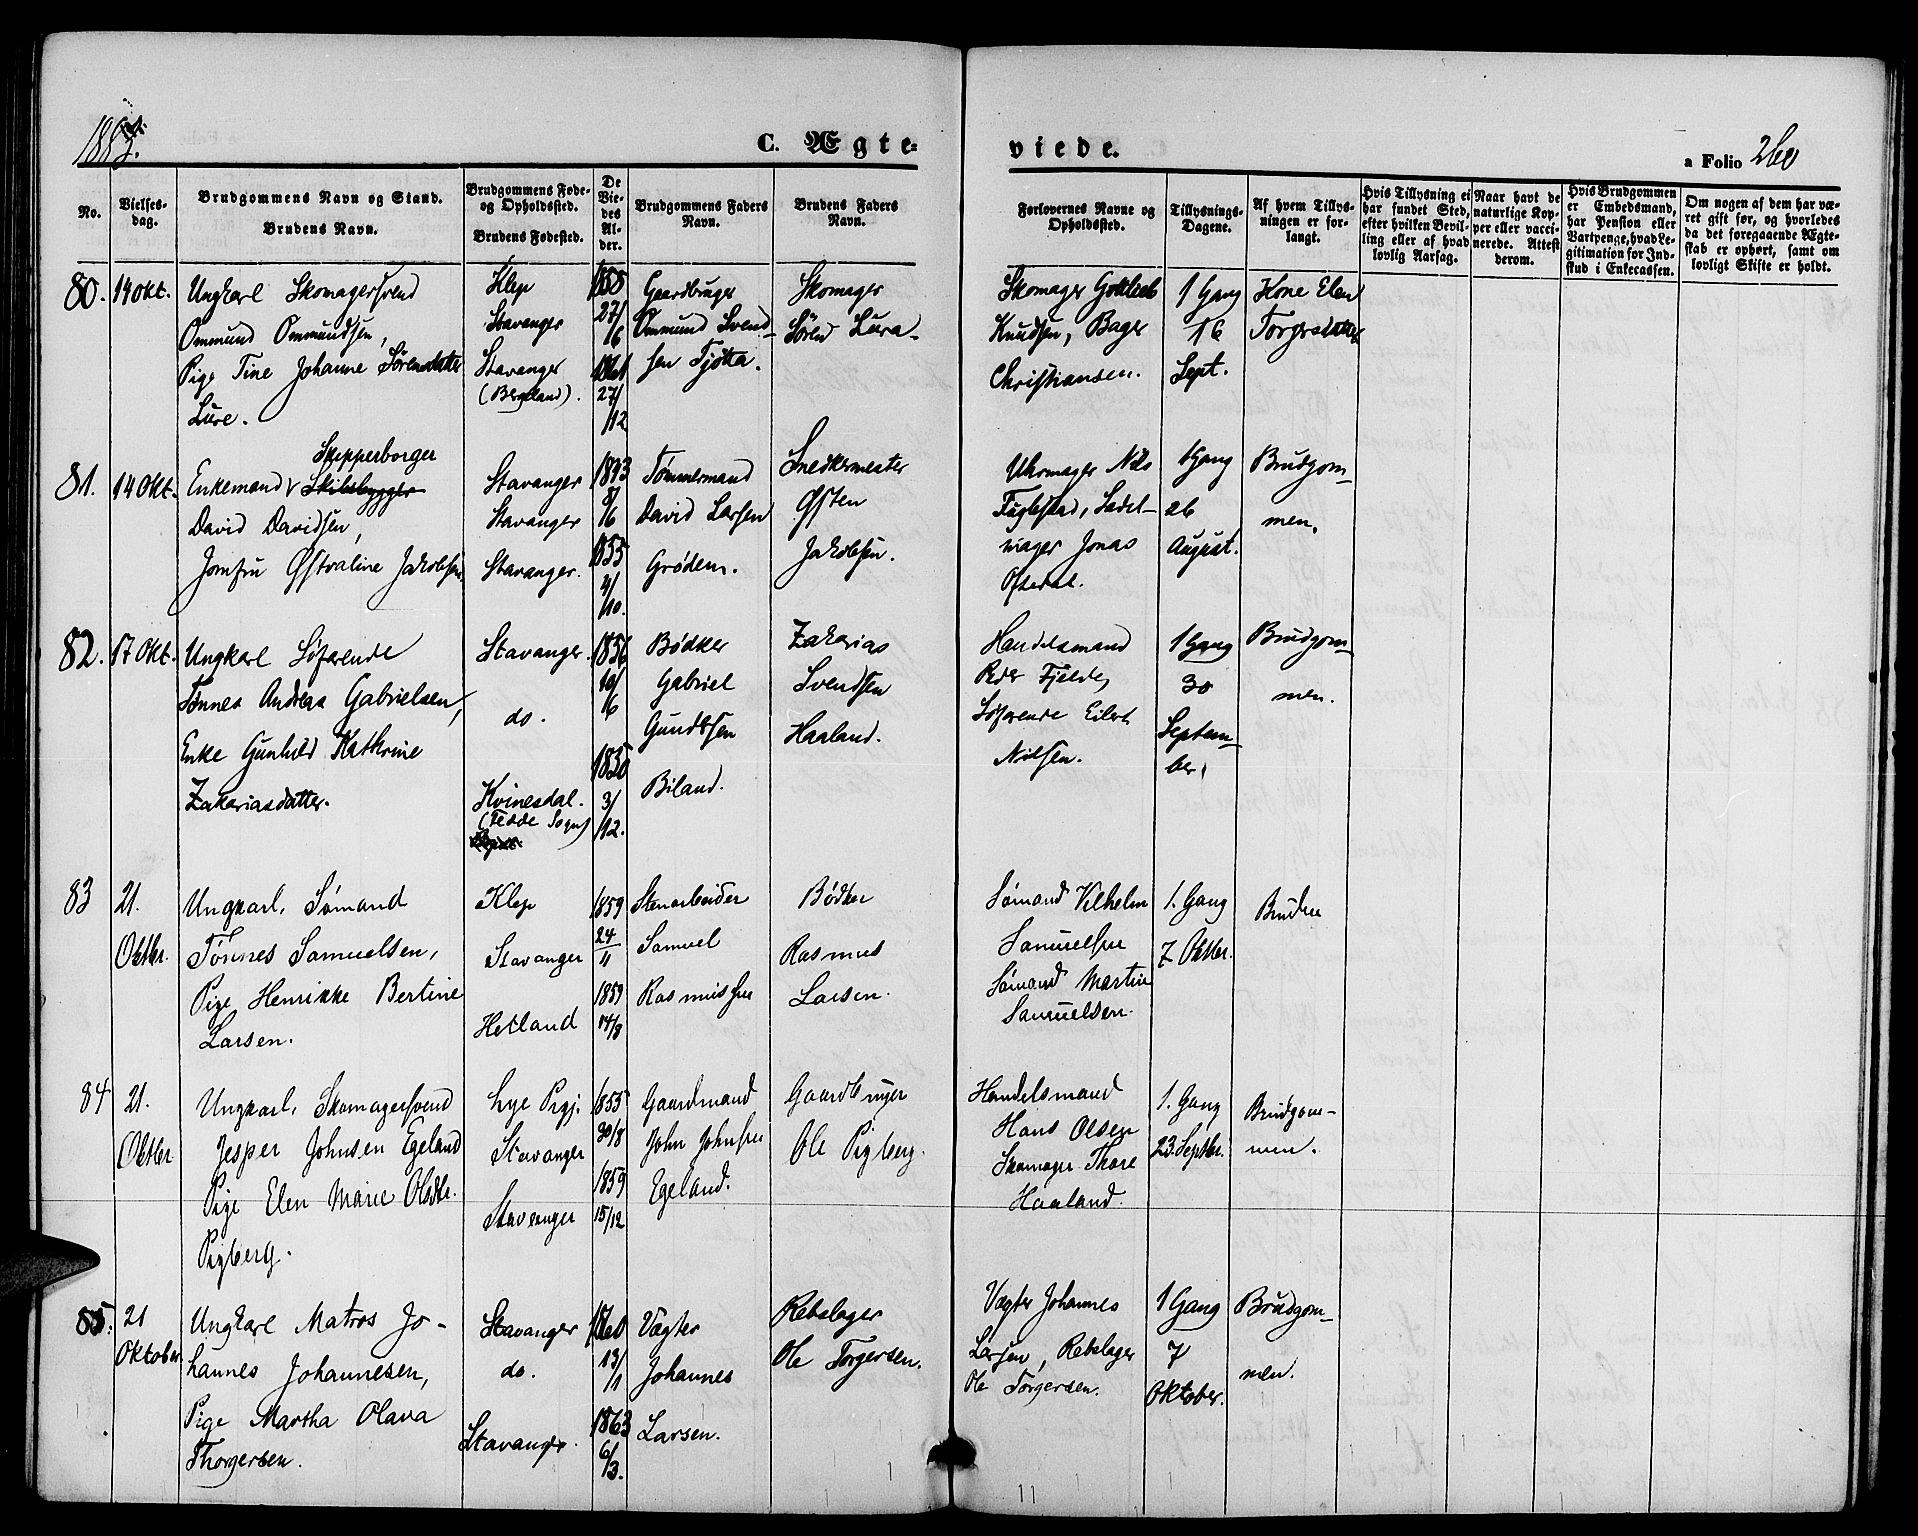 1883.
C. Ægte-
viede.
a Folio 260
No.
Vielses-
dag.
Brudgommens Navn og Stand.
Brudens Navn.
Brudgommens Føde-
og Opholdssted.
Brudens Fødested.
De
Vie-
des
Al-
der.
Brudgommens Faders
Navn.
Brudens Faders
Navn.
Forlovernes Navne og
Opholdssted.
Tillysnings-
Dagene.
Af hvem Tillys-
ningen er for-
langt.
Hvis Tillysning ei
har fundet Sted,
efter hvilken Bevil-
ling eller af hvad
lovlig Aarsag.
Naar havt de
naturlige Kop-
per eller vacci-
nerede. Attest
derom.
Hvis Brudgommen
er Embedsmand,
har Pension eller
Vartpenge, hvad Le-
gitimation for Ind-
skud i Enkecassen.
Om nogen af dem har væ-
ret gift før, og hvorledes
da det foregaaende Ægte-
skab er ophørt, samt om
lovligt Skifte er holdt.
80.
14 Okt.
Ungkarl Skomagersvend
Ommund Ommundsen,
Pige Tine Johanne Sørensdatter
Lure.
Klep
Stavanger
Stavanger
(Bergeland).
1858
27/
/6
1861
27/
/12
Gaardbruger
Ommund Svend-
sen Tjøtta.
Skomager
Søren Lura.
Skomager Gottlieb
Knudsen, Bager
Christiansen.
1 Gang
16
Sept.
Kone Elen
Torgersdatter
81.
14 Okt.
Skipperborger
Enkemand Skibsbygger
David Davidsen,
Jomfru Østvaline Jakobsen
Stavanger
Stavanger
Stavanger.
1833
8/
/6
1855
4/
/10.
Tømmermand
David Larsen
Grødem.
Snedkermester
Østen
Jakobsen.
Uhrmager Nils
Fuglestad, Sadel-
mager Jonas
Oftedal.
1 Gang
26
August.
Brudgom-
men.
82.
17 Okt.
Ungkarl Søfarende
Tønnes Andreas Gabrielsen,
Enke Gunhild Kathrine
Zakariasdatter.
Stavanger.
do.
Kvinesdal.
(Fedde Sogn)
1836
19/
/6
1830
3/
/12.
Bødker
Gabriel
Gundersen
Biland.
Zakarias
Svendsen
Haaland.
Handelsmand
Peder Fjelde,
Søfarende Eilert
Nielsen.
1 Gang
30
Septem-
ber.
Brudgom-
men.
83
21.
Oktbr.
Ungkarl, Sømand
Tønnes Samuelsen,
Pige Henrikke Bertine
Larsen.
Klep
Stavanger
Hetland
1859
24
11
1859
14/8
Stenarbeider
Samuel
Rasmussen
Bødker
Rasmus
Larsen.
Sømand Vilhelm
Samuelsen
Sømand Martin
Samuelsen.
1. Gang
7 Oktbr.
Bruden
84
21.
Oktbr
Ungkarl, Skomagersvend
Jesper Johnsen Egeland
Pige Elen Marie Olsdtr.
Pigberg.
Lye Prgj.
Stavanger
Stavanger
1855
30/8
1859
15/12
Gaardmand
John Johnsen
Egeland.
Gaardbruger
Ole Pigberg.
Handelsmand
Hans Olsen
Skomager Thore
Haaland.
1. Gang
23. Septbr.
Brudgom-
men.
85.
21
Oktober
Ungkarl Matros Jo-
hannes Johannesen,
Pige Martha Olava
Thorgersen.
Stavanger
do.
Stavanger.
1860
13/
/1
1863
6/
/3.
Vægter
Johannes
Larsen.
Rebslager
Ole Torgersen.
Vægter Johannes
Larsen, Rebslager
Ole Torgersen.
1 Gang
7
Oktober.
Brudgom-
men.